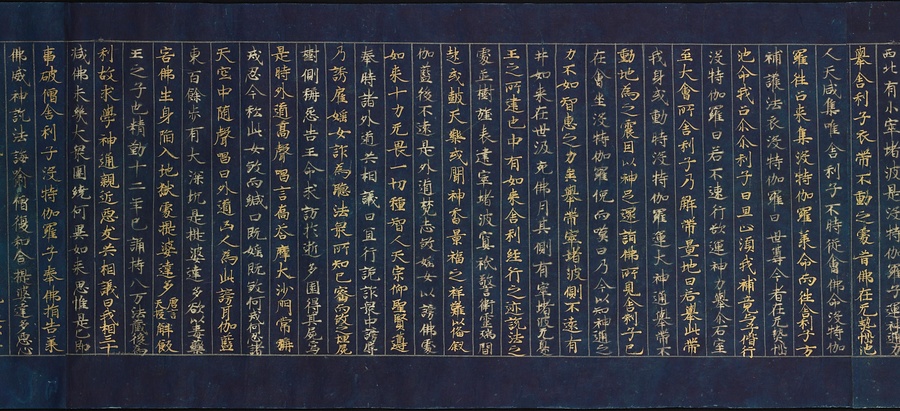 西北有小窣堵波是沒特伽羅子運神通力
舉舍利子衣帶不動之處昔佛在无熱惱池
人天咸集唯舍利子不時從會佛命沒特伽
羅往召來集沒特伽羅葉命而往舍利子方
補護法衣沒特伽羅曰世尊今者在无熱惱
池命我召尒舍利子曰且止須我補竟与子偕行
沒特伽羅曰若不速行欲運神力舉尒石室
至大會所舍利子乃解帶置地曰若舉此帶
我身或動時沒特伽羅運大神通舉帶不
動地為之震因以神足還詣佛所見舍利子已
在會坐沒特伽羅俛而嘆曰乃今以知神通之
力不如智惠之力矣舉帶窣堵波側不遠有
井如來在世汲充佛用其側有窣堵波无憂
王之所建也中有如來舍利經行之迹說法之
處並樹旌表建窣堵波冥祇警衛靈瑞間
起或鼓天樂或聞神香景福之祥難以備叙
伽藍後不遠世外道梵志煞婬女以謗佛處
如來十力无畏一切種智人天宗仰聖賢遵
奉時諸外道共相議曰宜行詭詐眾中謗辱
乃誘雇婬女詐為聽法眾所知已密而煞之埋屍
樹側稱怨告王命求訪於逝多園得其屍焉
是時外道高聲唱言喬荅摩大沙門常稱
戒忍今私此女煞而緘口既婬既煞何戒何忍諸
天空中隨聲唱曰外道凶人為此謗耳伽藍
東百餘步有大深坑是提婆達多欲以毒藥
害佛生身陷入地獄處提婆達多唐言天授斛飯
王之子也精勤十二年已誦持八万法藏後為
利故求學神通親近惡友共相議曰我相三十
減佛未幾大眾圍繞何異如來思惟是已即
事破僧舍利子沒特伽羅子奉佛指告承
佛威神說法誨喻僧復和合提婆達多惡心